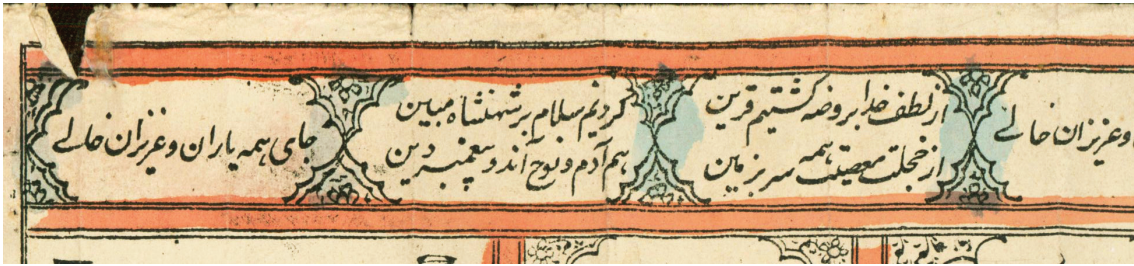 و عزیزان خالے
از لطف خدا بروضه گشتیم قرین
از خجلت معصیت همه سر بزمین
کردیم سلام بر شهنشاه مبین
هم آدم و نوح آند و پیغمبر دین
جای همه یاران و عزیزان خالے